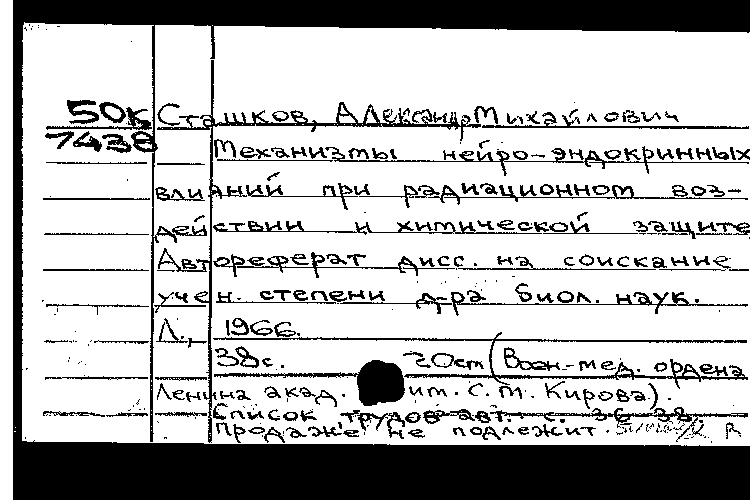 50к Сташков, Александр Михайлович
7438 Механизмы нейро-эндокринных
влияний при радиационном воз-
действии и химической защите
Автореферат дисс. на соискание
учен. степени д-ра биол. наук.
Л., 1966.
38с. 20см (Воен-мед. ордена
Ленина акад. им. С.М. Кирова).
Список трудов авт.: с. 36-38.
Продаже не подлежит.